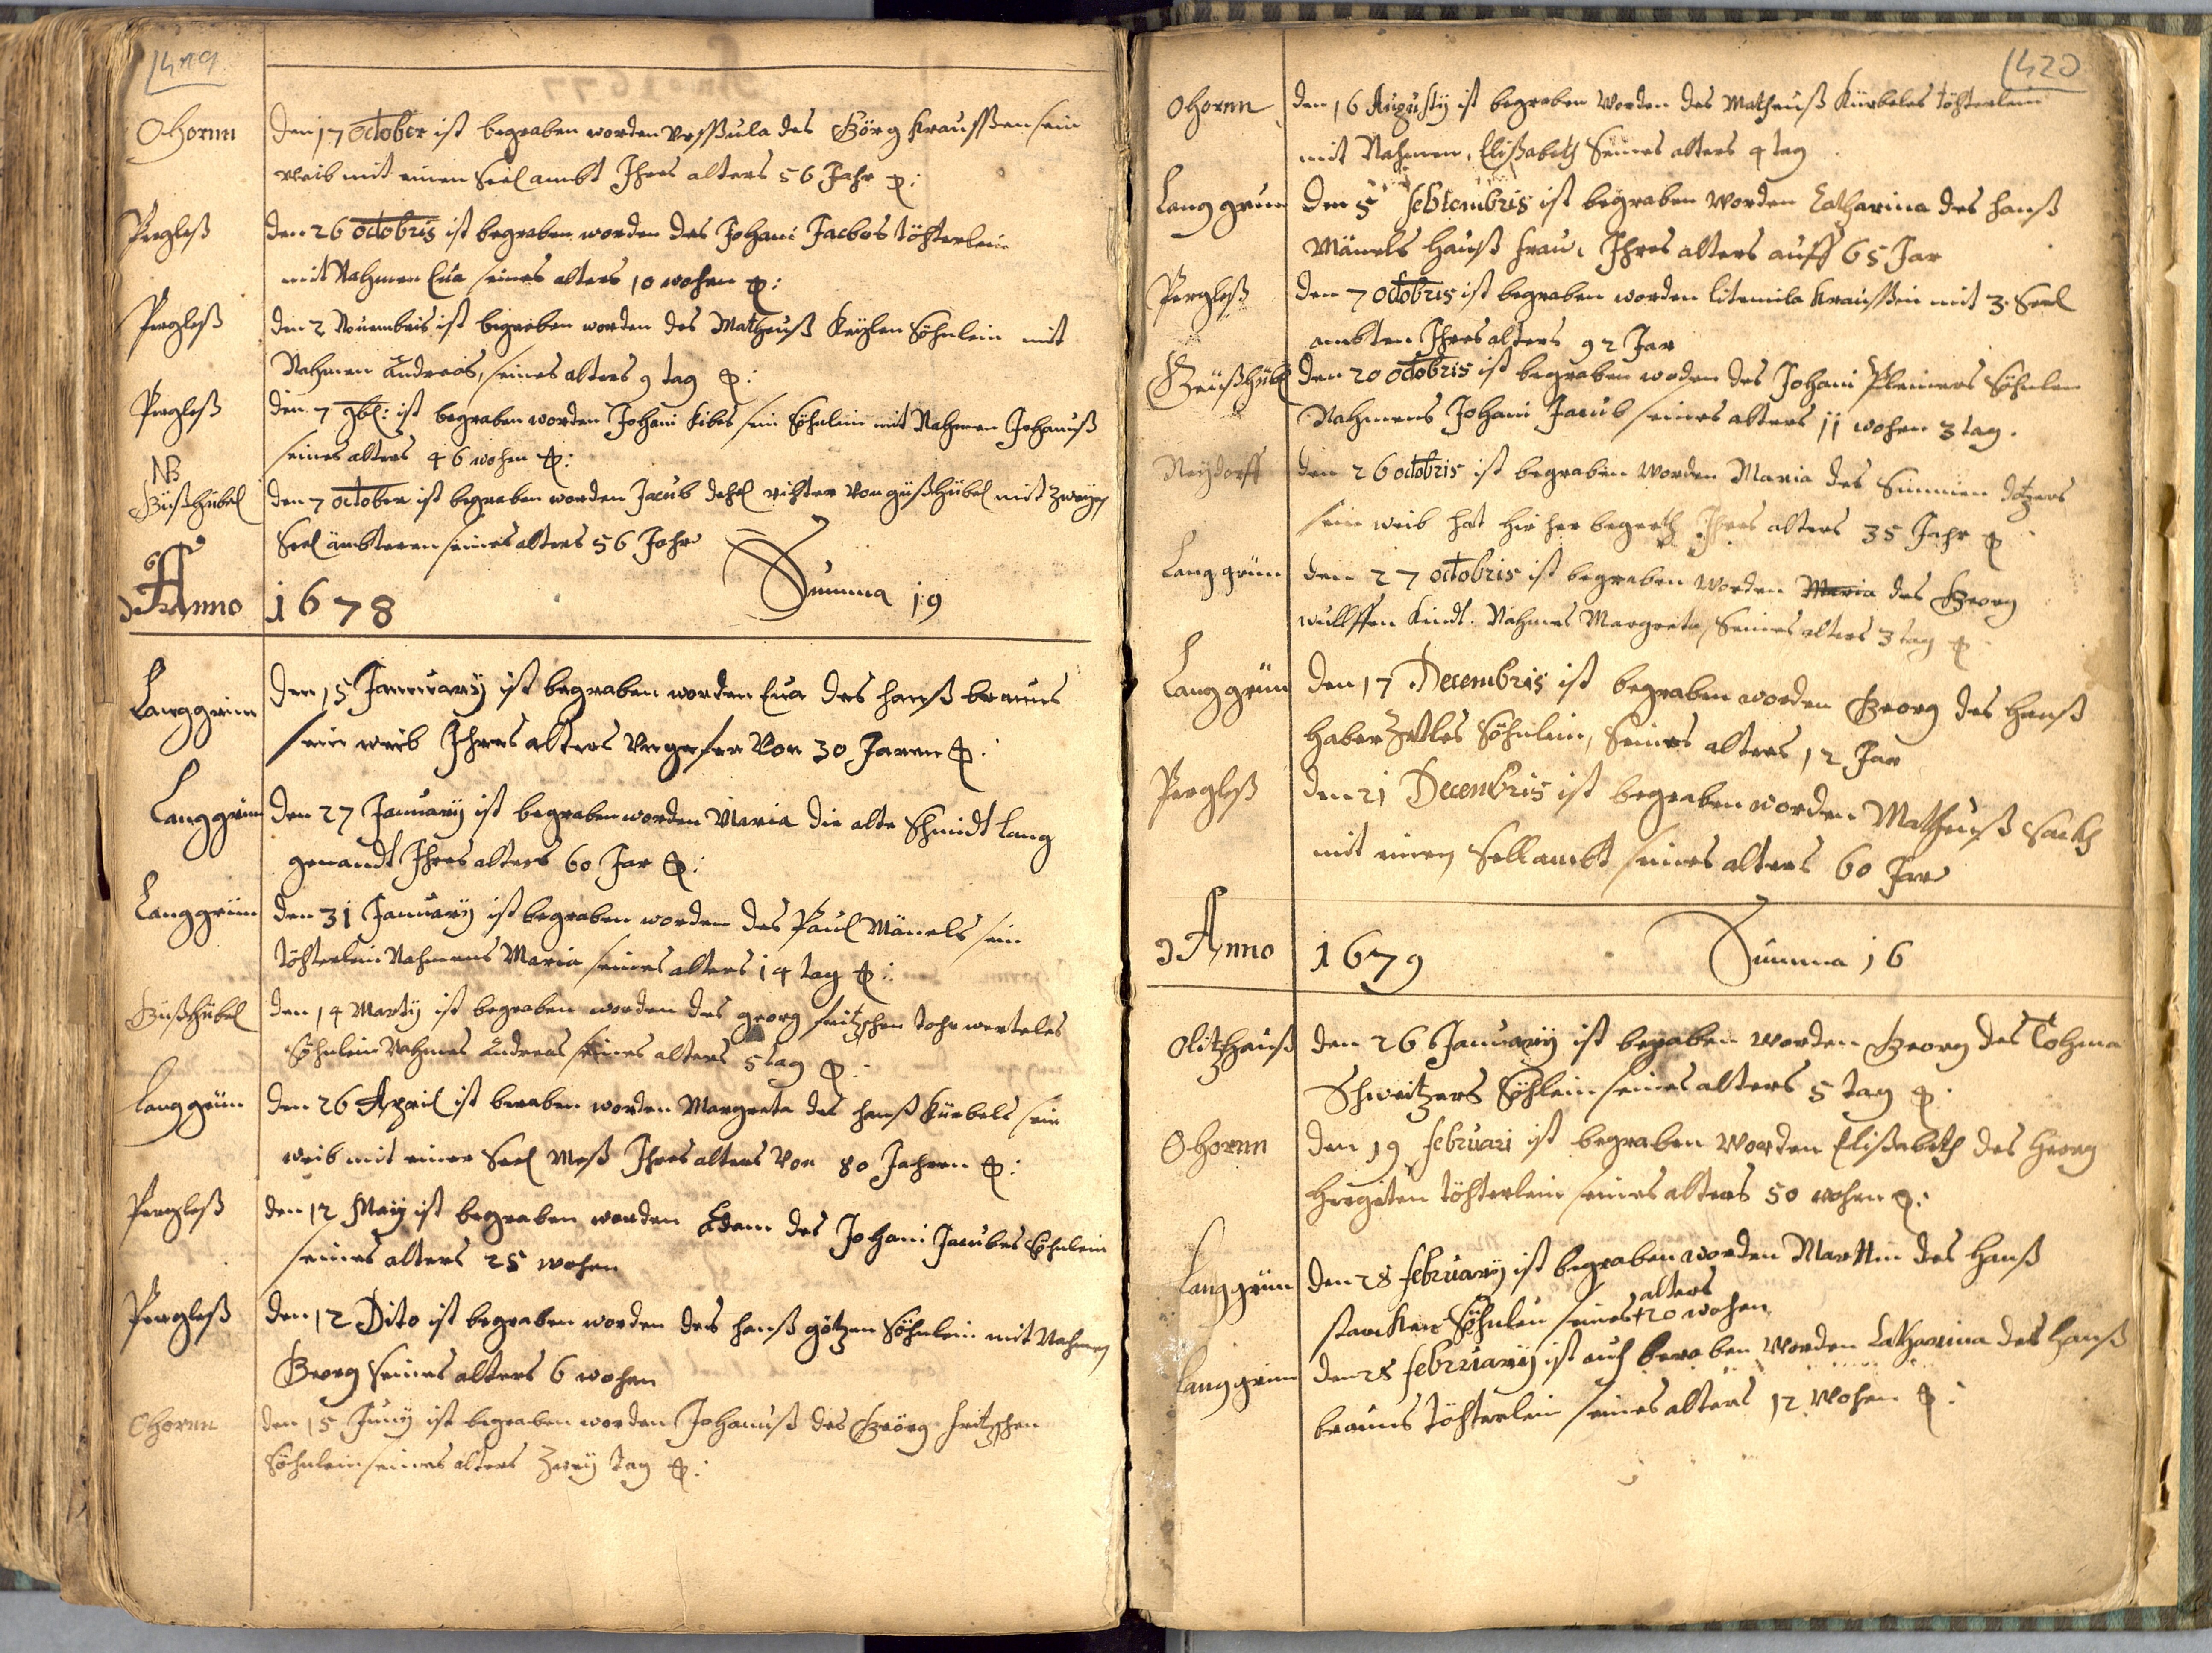 1419
Ohornn
den 17 October ist begraben worden Vrsßula des Görg Kraussen sein
weib mit einen Seel ambt Ihres alters 56 Jahr
Pergleß
den 26 octobris ist begraben worden des Johani Jacobs töhterlein
mit Nahmen Eua seines alters 10 wohen
Pergleß
den 2 Nouembris ist begraben worden des Matheuß Söhnlein mit
Nahmen Andreas, seines alters 9 tag
Pergleß
den 7 9bl: ist begraben worden Johani Kibes sein Söhnlein mit Nahmen Johanuß
seines alters 46 wohen
NB
Güßhübel
den 7 october ist begraben worden Jacub rihter Von güßhübel mit zweyen
Seel ämbteren seines alters 56 Johr
Anno 1678 Summa 19
Langgrün
den 15 Januuarÿ ist begraben worden Eua des hanß brauns
sein weib Ihres alters Vngefer Von 30 Jaren
Langgrün
den 27 Januarÿ ist begraben worden Maria die alte Schmidt Lang
genandt Ihres alters 60 Jar
Langgrün
den 31 Januarÿ ist begraben worden des Paul Mänels sein
töhterlein Nahmens Maria seines alters 14 tag
Güßhübel
den 14 Martÿ ist begraben worden des georg fritzschen
Söhnlein Nahmes Andreas seines alters 5 tag
Langgrün
den 26 April ist beraben worden Margreta des hanß Kürbels sein
weib mit einer Seel Meß Ihres alters Von 80 Jahren
Pergleß
den 12 Maÿ ist begraben worden Adam des Johani Jacubes Söhnlein
seines alters 25 wohen
Pergleß
den 12 Dito ist begraben worden des hanß götzen Söhnlein mit Nahmen
Georg seines alters 6 wohen
Ohornn
den 15 Junÿ ist begraben worden Johanuß des Geörg fritzschen
Söhnlein seines alters Zweÿ tag
1420
Ohornn
den 16 Augustÿ ist begraben worden des Matheuß Kürbeles töhterlein
mit Nahmen, Elißabeth Seines alters 4 tag
Langgrun
den 5 Sebtembris ist begraben worden Catharina des hanß
Mänels hauß frau, Ihres alters auff 65 Jar
Pergleß
den 7 octobris ist begraben worden litemila Kraussin mit 3 Seel
ambten Ihres alters 92 Jar
Geüßhübl
den 20 octobris ist begraben worden des Johani Pleiners Söhnlen
Nahmens Johani Jacub seines alters 11 wohen 3 tag.
Neÿdorff
den 26 octobris ist begraben worden Maria des Simmien
sein weib hat hie her begerth Ihres alters 35 Jahr
Langgrün
den 27 octobris ist begraben worden Maria des Georg
wullffen Kindt. Nahmes Margreta, Seines alters 3 tag
Langgrün
den 17 Decembris ist begraben worden Georg des hanß
haberzettles Söhnlein, Seines alters 12 Jar
Pergleß
den 21 Decenbris ist begraben worden Matheuß Sack
mit einen Sellambt seines alters 60 Jar
Anno 1679 Summa 16
Olitzhauß
den 26 Januarÿ ist begaben worden Georg des Tohma
Schweitzers Söhlein seines alters 5 tag
Ohornn
den 19 februari ist begraben worden Elißabeth des Georg
töhterlein seines alters 50 wohen
Langgrün
den 28 februarÿ ist begraben worden Marttin des hanß
alters
starcken Söhnlen seines + 20 wohen
Langgrün
den 28 februarÿ ist auch beraben worden Catharina des hanß
brauns töhterlein seines alters 12 wohen